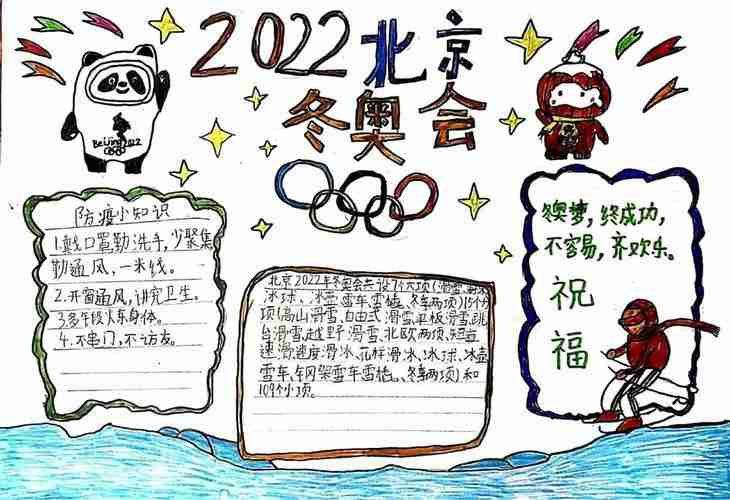 2022北京
冬奥会
Beijing 2022
防疫小知识
1.戴口罩勤洗手,少聚集
勤通风,一米线。
2.开窗通风,讲究卫生。
3.多年段火东身体。
4.不串门,不访友。
北京2022年冬奥会共设7个大项(滑雪、
冰球、冰壶、雪车、雪橇、冬季两项)15个分
项(高山滑雪、自由式滑雪、平板滑雪、跳
台滑雪、越野滑雪、北欧两项、短道
速滑、速度滑冰、花样滑冰、冰球、冰壶、
雪车、钢架雪车、雪橇、冬季两项)和
109个小项。
冬奥梦,终成功,
不容易,齐欢乐。
祝
福